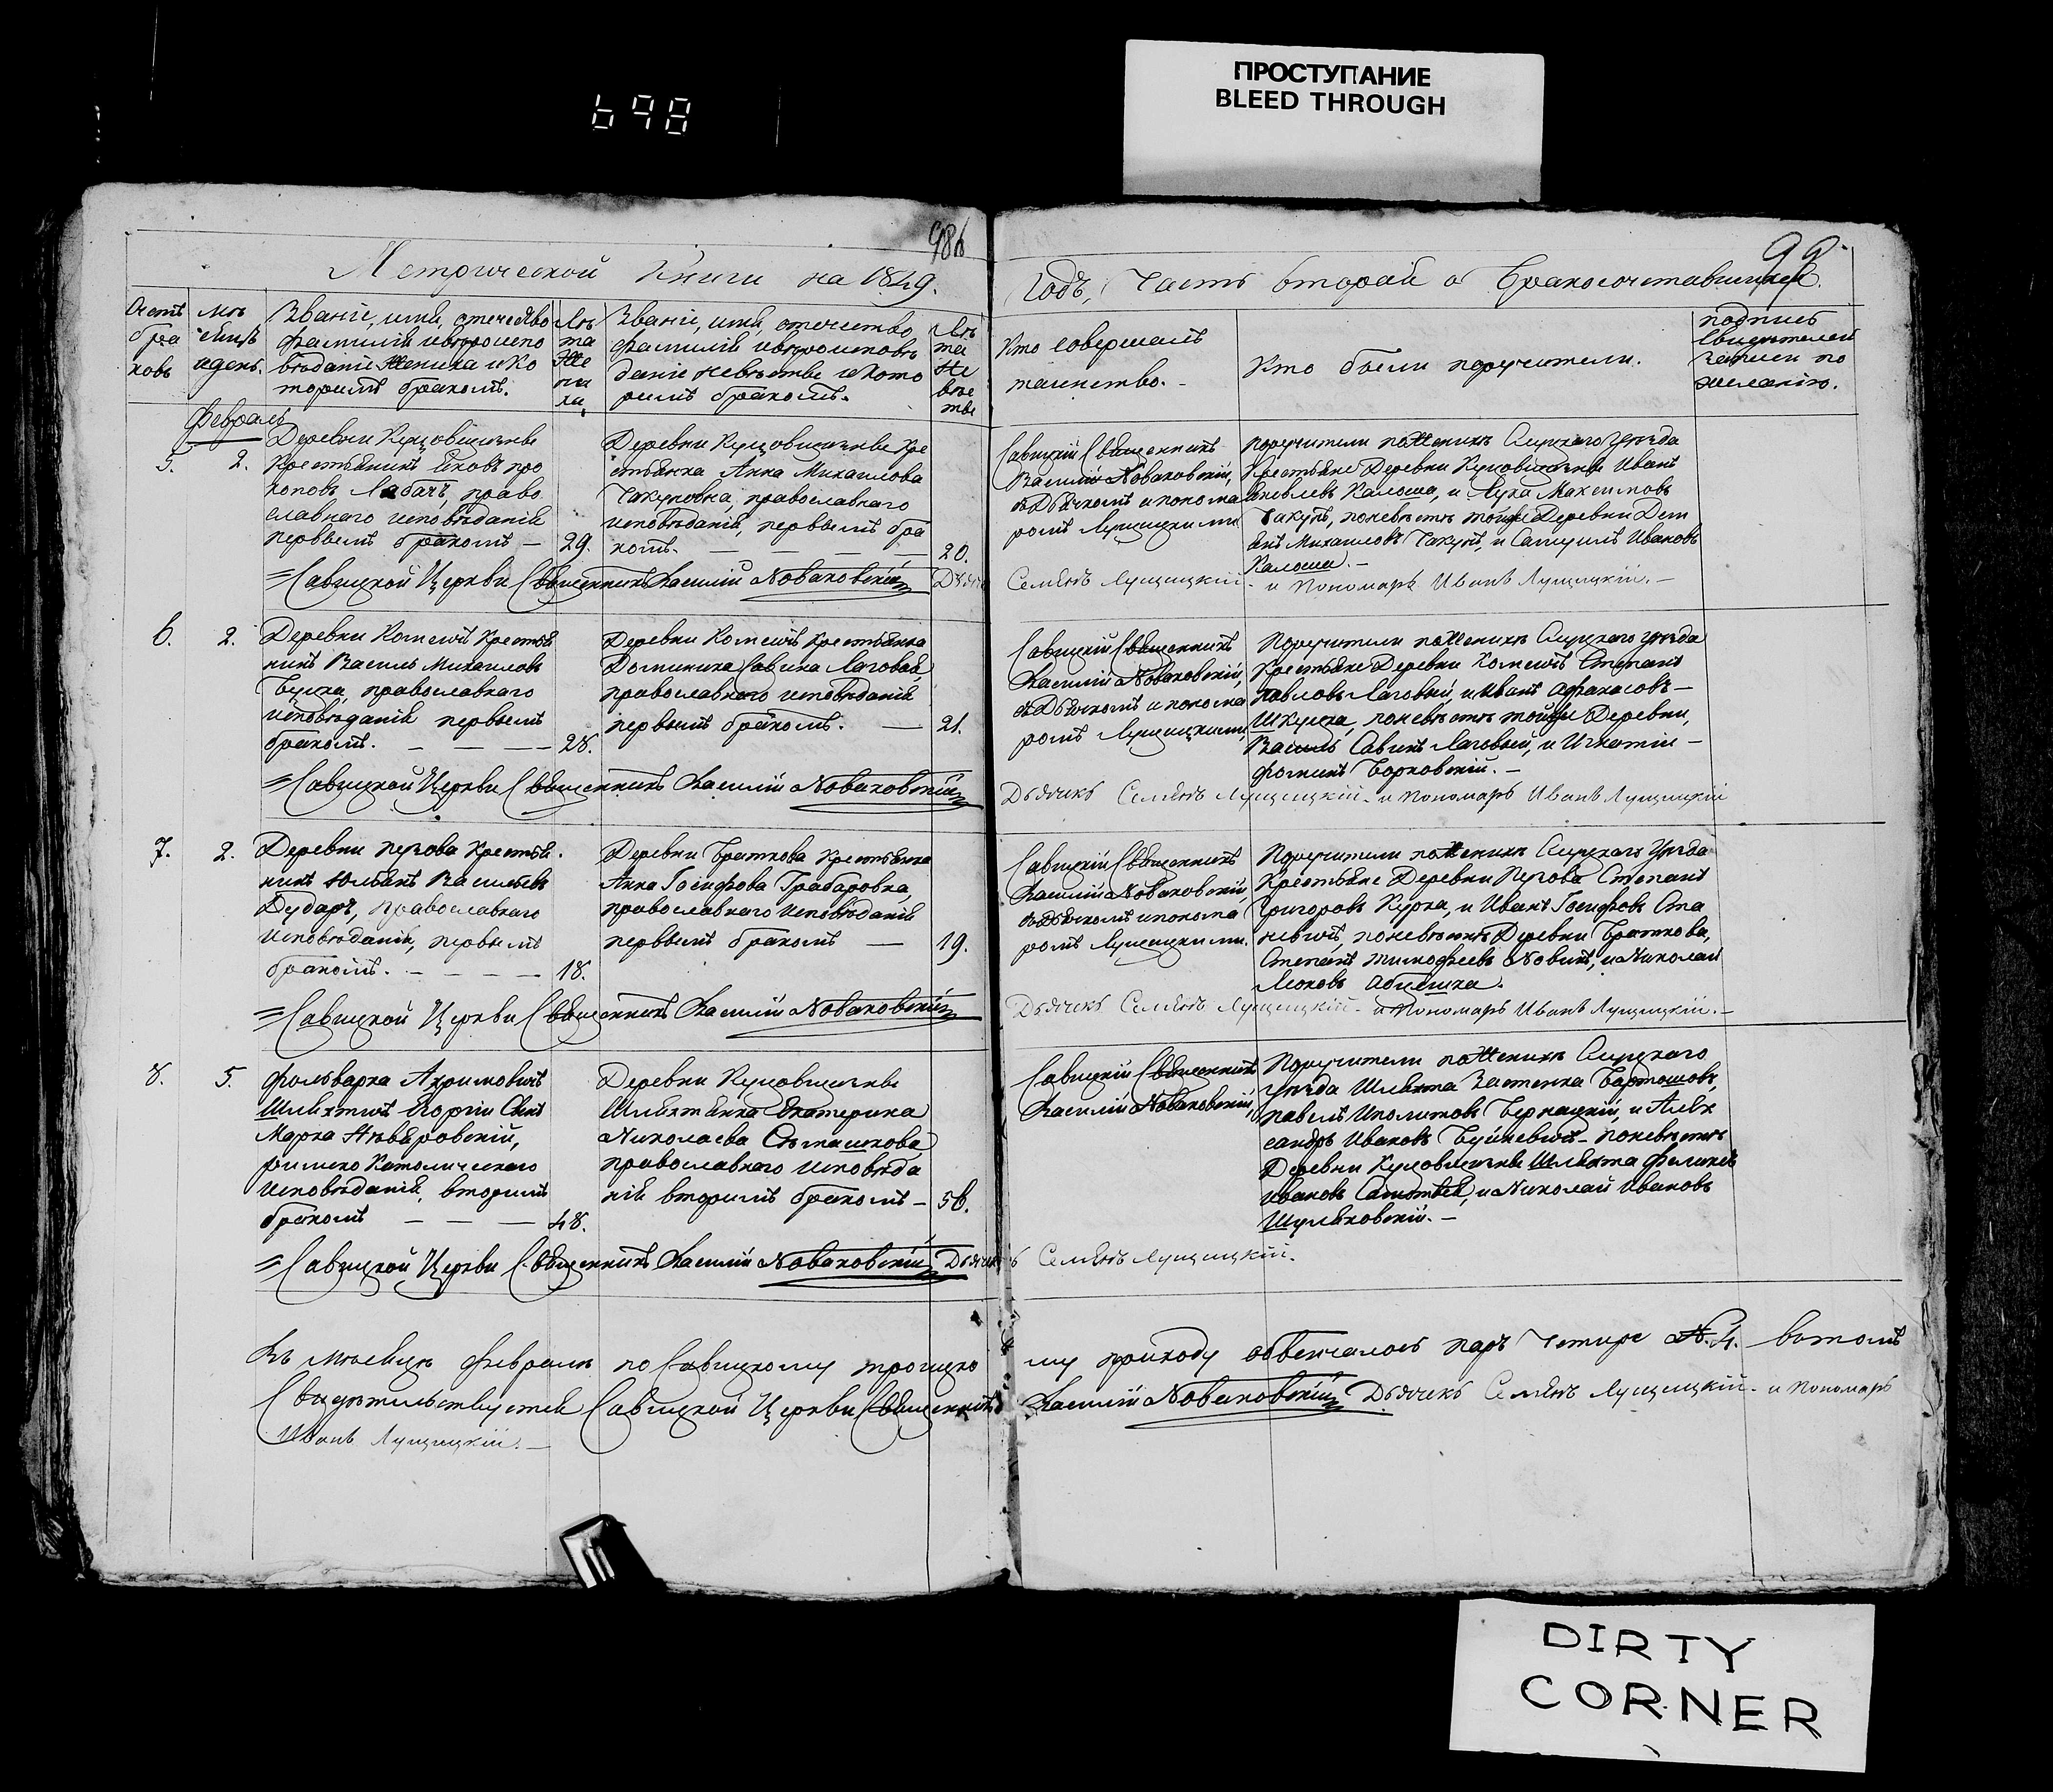 ПРОСТУПАНИЕ
BLEED THROUGH
698
98б
99.
Метрической Книги на 1849.
Годъ, Часть вторая о бракосочетавшихся.
Счетъ
бра
ковъ
Мѣ
сяцъ
и день.
Званіе, имя, отечество
фамилія и вѣроиспо
вѣданіе Жениха и ко
торымъ бракомъ.
Лѣ
та
Же
ни
ха.
Званіе, имя, отечество
фамилія и вѣроисповѣ
даніе невѣсты и кото
рымъ бракомъ.
Лѣ
та
Не
вѣс
ты
Кто совершалъ
таинство.
Кто были поручители.
подпись
свидѣтелей
записи по
желанію.
Февраль
5. 2.
Деревни Куцовщизны
Крестьянинъ Яковъ про
коповъ Лабачъ, право
славнаго исповѣданія
первымъ бракомъ — 29.
Деревни Куцовщизны Кре
стьянка Анна Михайлова
Чакуновна, православнаго
исповѣданія, первымъ бра
комъ. — — — — 20.
Савицкій Священникъ
Василій Новаковскій,
съ Дьячкомъ и понома
ромъ Лущицкими
Поручители по Женихѣ Слуцкаго уѣзда
Крестьяне Деревни Куцовщизны Иванъ
Яковлевъ Калоша, и Лука Максимовъ
Чакунъ, по невѣстѣ той же Деревни Дем
янъ Михайловъ Чакунъ, и Самуилъ Ивановъ
Калоша. —
Савицкой Церкви Священникъ Василій Новаковскій Дьячикъ Семіонъ Лущицкій. и Пономаръ Иванъ Лущицкій. —
6. 2.
Деревни Комсичъ Крестья
нинъ Василь Михайловъ
Буцка, православнаго
исповѣданія первымъ
бракомъ. — — — 28.
Деревни Комсичъ Крестьянка
Доминика Савина Лаговая,
православнаго исповѣданія
первымъ бракомъ. — 21.
Савицкій Священникъ
Василій Новаковскій,
съ Дьячкомъ и понома
ромъ Лущицкими,
Поручители по Женихѣ Слуцкаго уѣзда
Крестьяне Деревни Комсичъ Степанъ
павловъ Лаговый, и Иванъ Афанасовъ —
Шкулка, по невѣстѣ той же Деревни,
Василь Савинъ Лаговый, и Игнатій —
Фоминъ Борковскій. —
Савицкой Церкви Священникъ Василій Новаковскій
Дьячикъ Семіонъ Лущицкій. и Пономаръ Иванъ Лущицкій
7. 2.
Деревни Пузова Крестья
нинъ Юльянъ Васильевъ
Дударъ, православнаго
исповѣданія, первымъ
бракомъ. — — — — 18.
Деревни Браткова Крестьянка
Анна Іосифова Грабаровна,
православнаго исповѣданія
первымъ бракомъ — 19.
Савицкій Священникъ
Василій Новаковскій,
съ Дьячкомъ и понома
ромъ Лущицкими.
Поручители по Женихѣ Слуцкаго уѣзда
Крестьяне Деревни Пузова Степанъ
Григоровъ Курка, и Иванъ Іосифовъ Ста
невичъ, по невѣстѣ Деревни Браткова,
Степанъ Тимофеевъ Новикъ, и Николай
Леоновъ Абцешка.
Савицкой Церкви Священникъ Василій Новаковскій
Дьячикъ Семіонъ Лущицкій. и Пономаръ Иванъ Лущицкій. —
8. 5.
Фольварка Ахримовичъ
Шляхтичъ Георгій Сынъ
Марка Анвяровскій,
римско Католическаго
исповѣданія, вторымъ
бракомъ — — — 48.
Деревни Куцовщизны
Шляхтянка Екатерина
Николаева Сѣмашкова
православнаго исповѣда
нія вторымъ бракомъ — 56.
Савицкій Священникъ
Василій Новаковскій,
Поручители по Женихѣ Слуцкаго
уѣзда Шляхта Застенка Бартошовъ,
павелъ Иполитовъ Бернацкій, и Алек
сандръ Ивановъ Буйневичъ — по невѣстѣ
Деревни Куцовщизны Шляхта Феликсъ
Ивановъ Самотыя, и Николай Ивановъ
Шуляковскій. —
Савицкой Церкви Священникъ Василій Новаковскій Дьячикъ Семіонъ Лущицкій.
Въ Мѣсяцѣ Февралѣ по Савицкому троицко
му приходу обвенчалось паръ четыре №. 4. въ томъ
Свидѣтельствуетъ Савицкой Церкви Священникъ
Василій Новаковскій Дьячикъ Семіонъ Лущицкій. и Пономаръ
Иванъ Лущицкій. —
DIRTY
CORNER